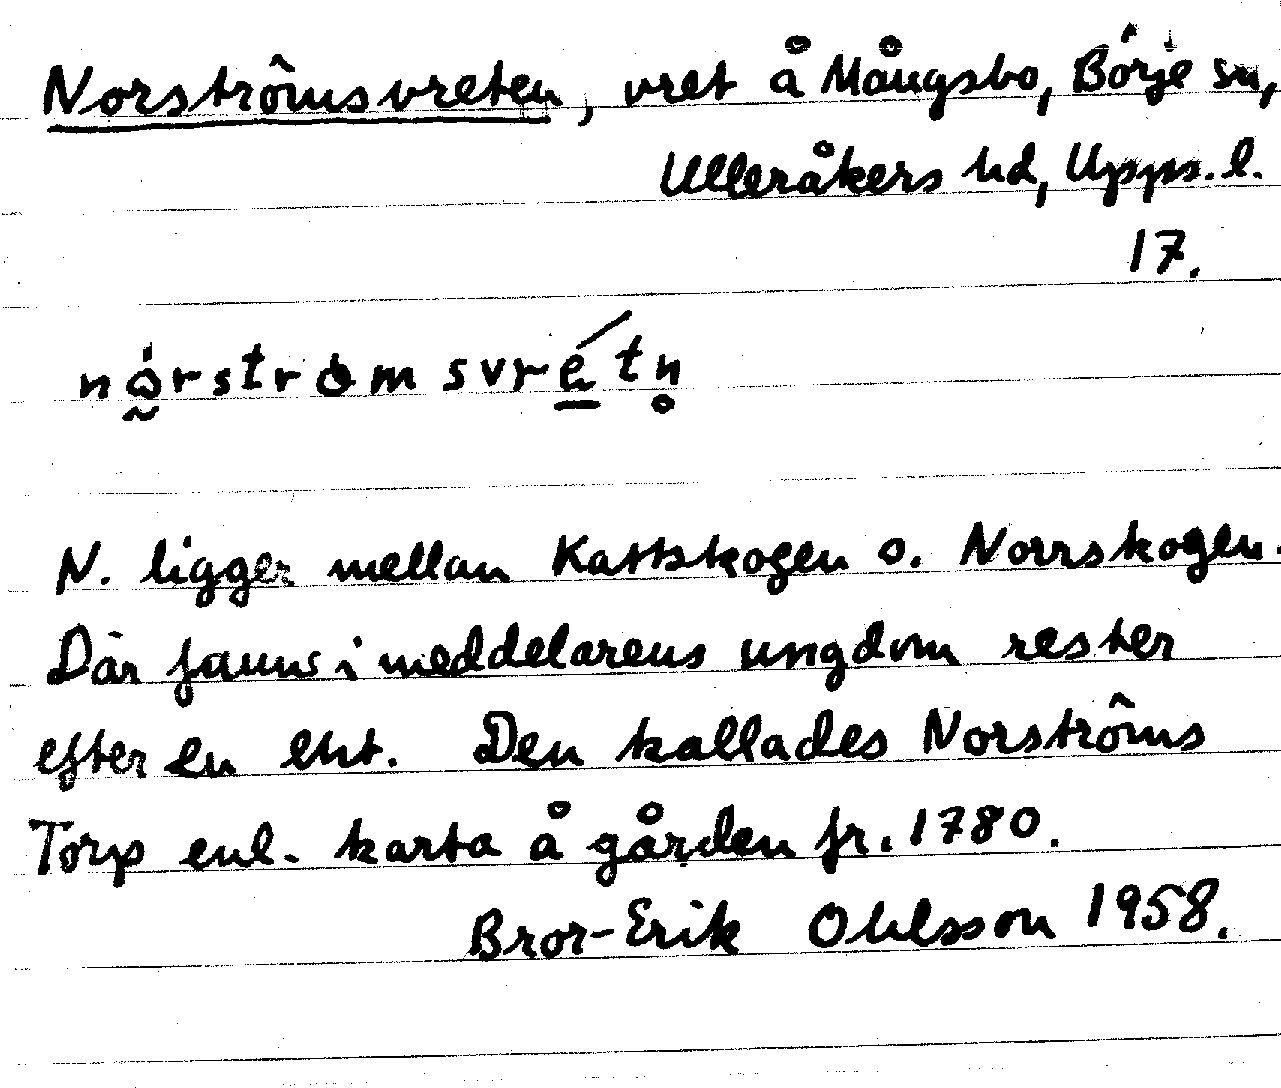 Norströmsvreten, vret å Mångsbo, Börje sn,
Ulleråkers hd, Upps. l.
17.
N. ligger mellan Kattskogen o. Norrskogen.
Där fanns i meddelarens ungdom rester
efter en lht. Den kallades Norströms
Torp enl. karta å gården fr. 1780.
Bror-Erik Ohlsson 1958.